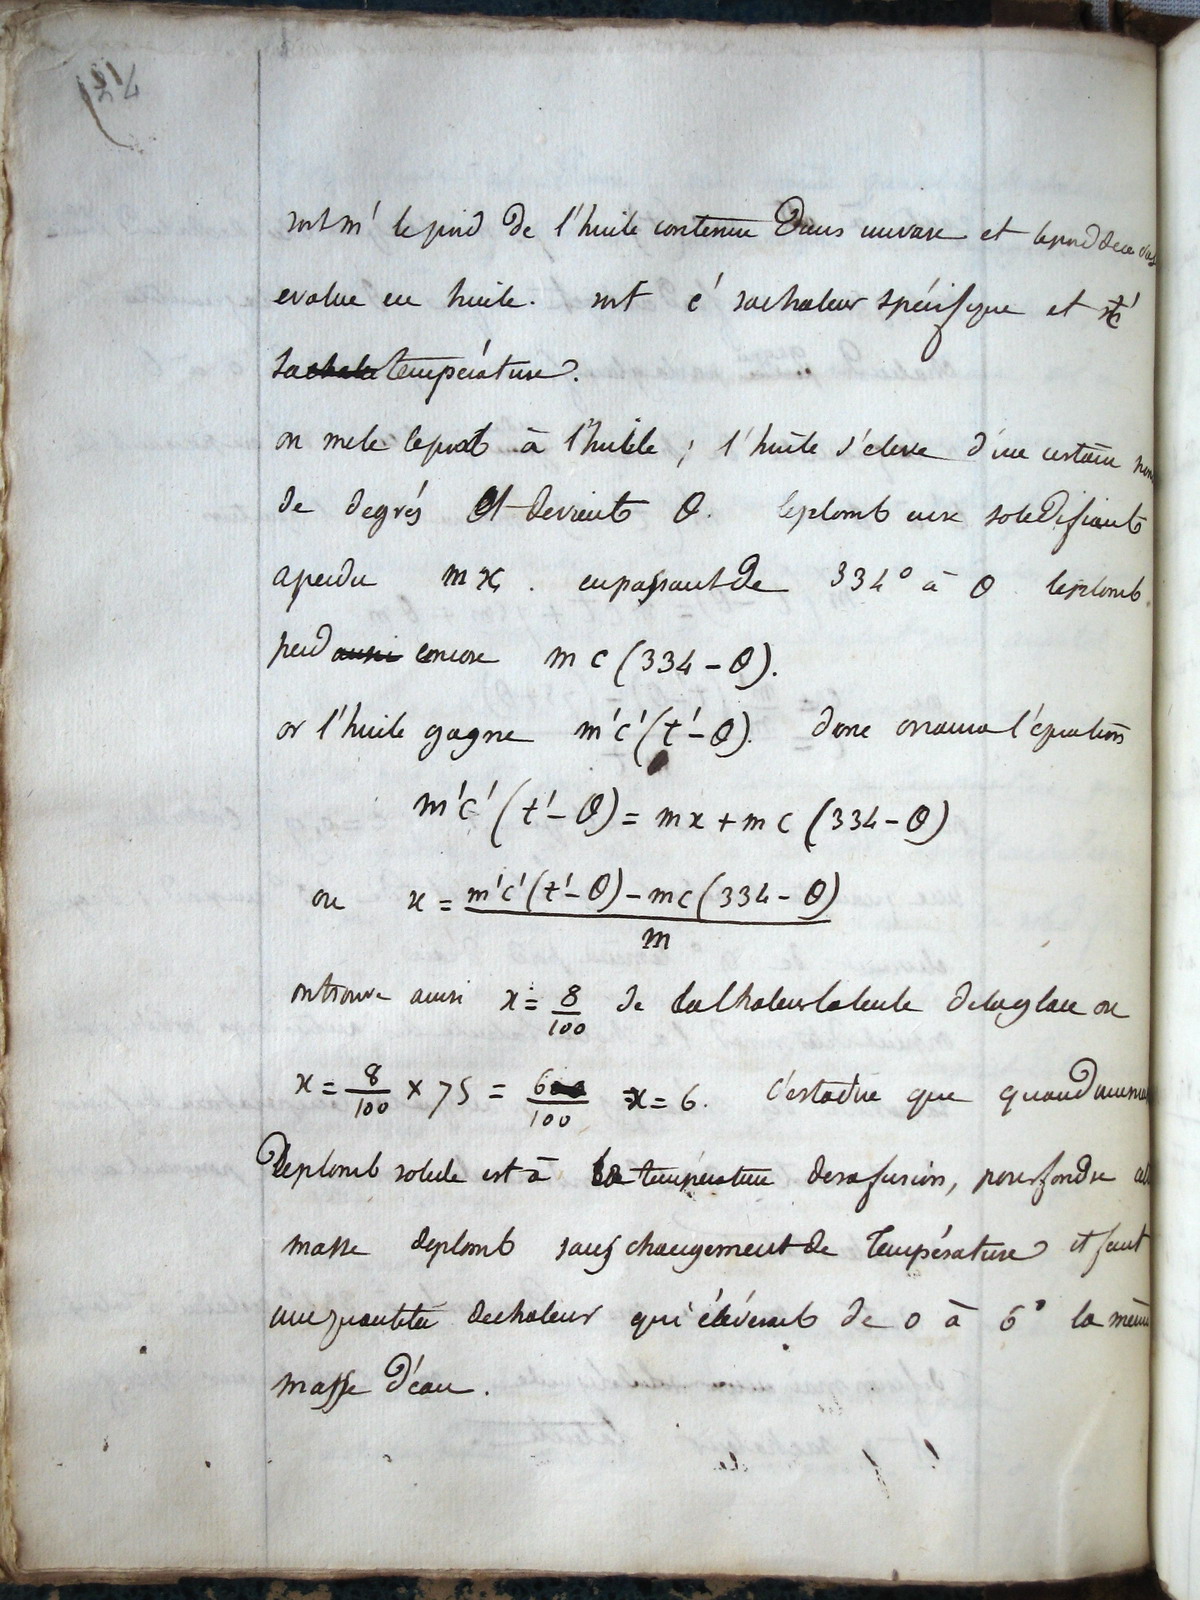 soit m' le poid de l'huile contenue Dans un vase et le poid de ce vase
evalue en huile. soit c' sa chaleur spécifique et t'
sa chale température.
on mele le plomb à l'huile ; l'huile s'eleve d'un certain nom
de degrés Et devient θ. le plomb en se solidifiant
a perdu mx. en passant de 334° à θ le plomb
perd aussi encore m c (334 - θ).
or l'huile gagne m'c'(t' - θ). donc on aura l'équation
m'c' (t' - θ) = mx + m c (334 - θ)
ou x = m'c'(t' - θ) - mc (334 - θ) / m
on trouve ainsi x = 8/100 de la chaleur latente de la glace ou
x = 8/100 × 75 = 600/100 x = 6. c'est a dire que quand une masse
De plomb solide est à la température de sa fusion, pour fondre cette
masse de plomb sans changement de Température il faut
une quantité de chaleur qui éléverait de 0 à 6° la même
masse d'eau.